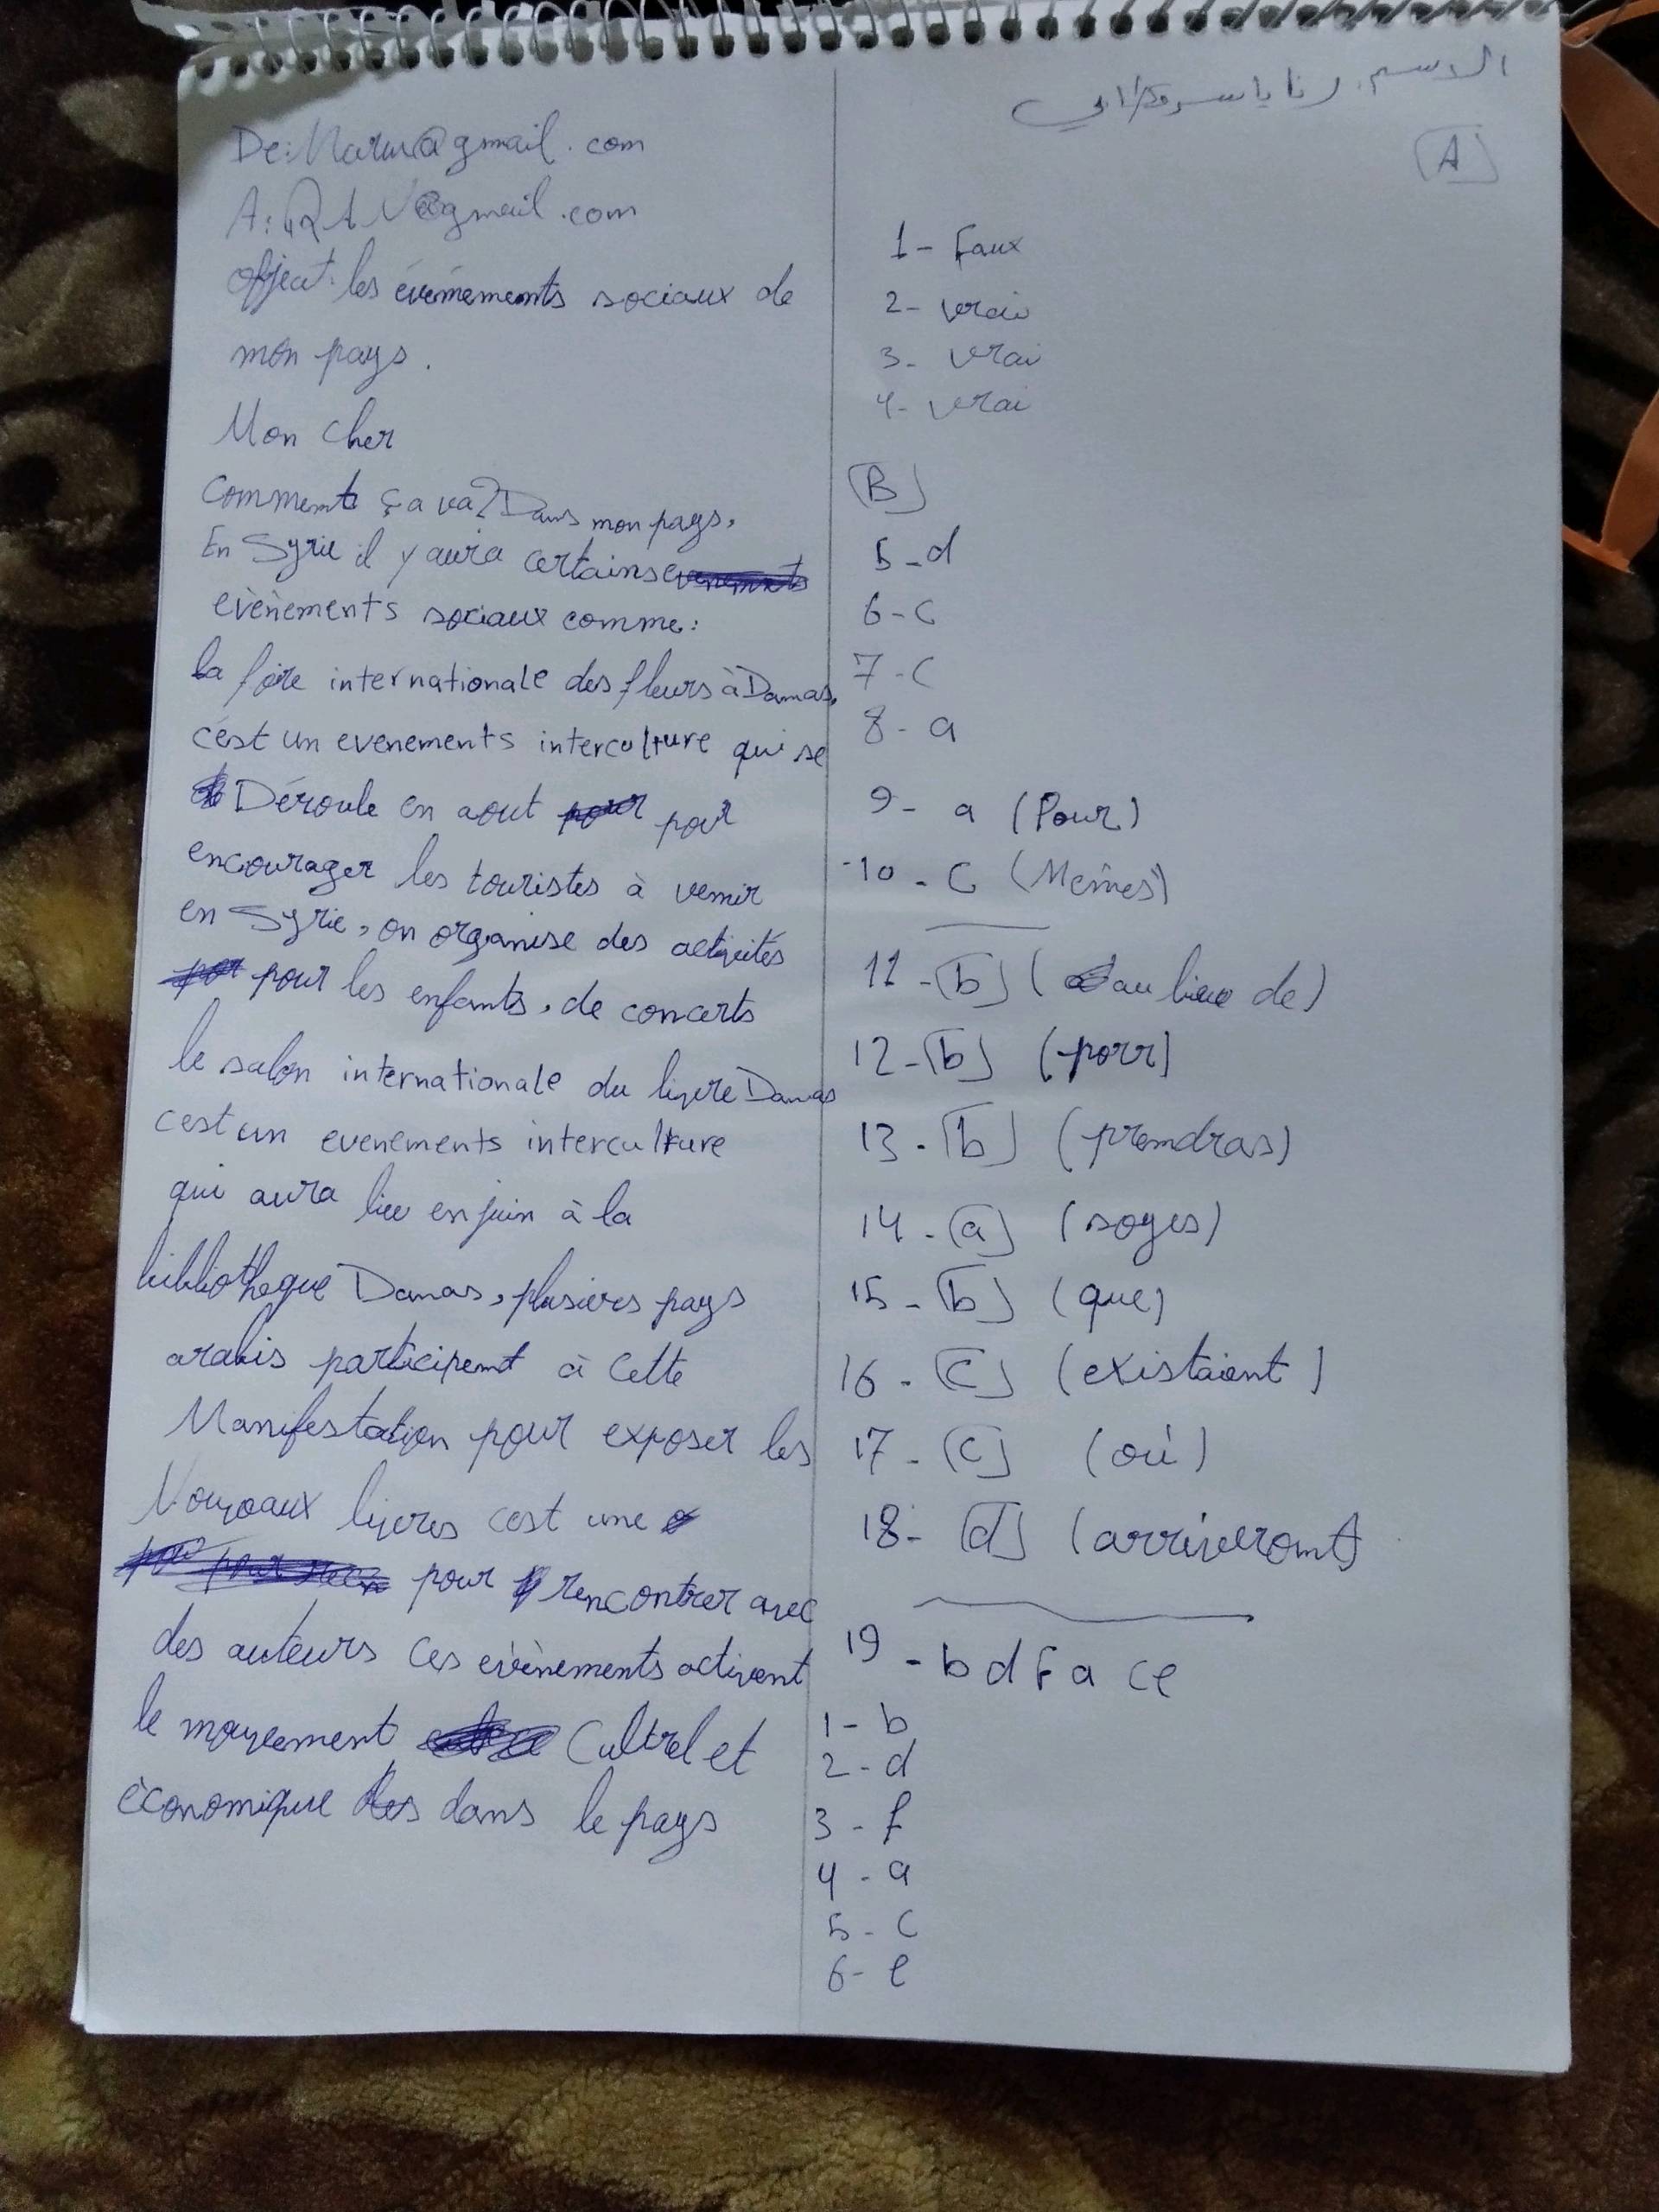 الاسم: رنا ياسر
A
1- Faux
2- vrai
3- vrai
4- vrai
B
5-d
6-c
7-c
8-a
9- a (Pour)
10-c (Mêmes)
11-b (au lieu de)
12-b (porr)
13-b (prendras)
14-a (soyes)
15-b (que)
16-c (existaient)
17-c (où)
18-d (arriveront)
19-b d F a c e
1-b
2-d
3-f
4-a
5-c
6-e
De: @gmail.com
A: @gmail.com
objeat: les événements sociaux de
mon pays.
Mon cher
comment ça va? Dans mon pays,
En Syrie il y aura certains
evènements sociaux comme:
la foire internationale des fleurs à Damas,
c'est un evenements interculture qui se
Déroule en aout pour
encourager les touristes à venir
en Syrie, on organise des activités
pour les enfants, de concerts
le salon internationale du livre Damas
c'est un evenements interculture
qui aura lieu en juin à la
bibliotheque Damas, plusieurs pays
arabis participent à cette
Manifestation pour exposer les
Nouveaux livres cest une
pour rencontrer avec
des auteurs ces evènements activent
le mouvement Cultrel et
èconomique dans le pays